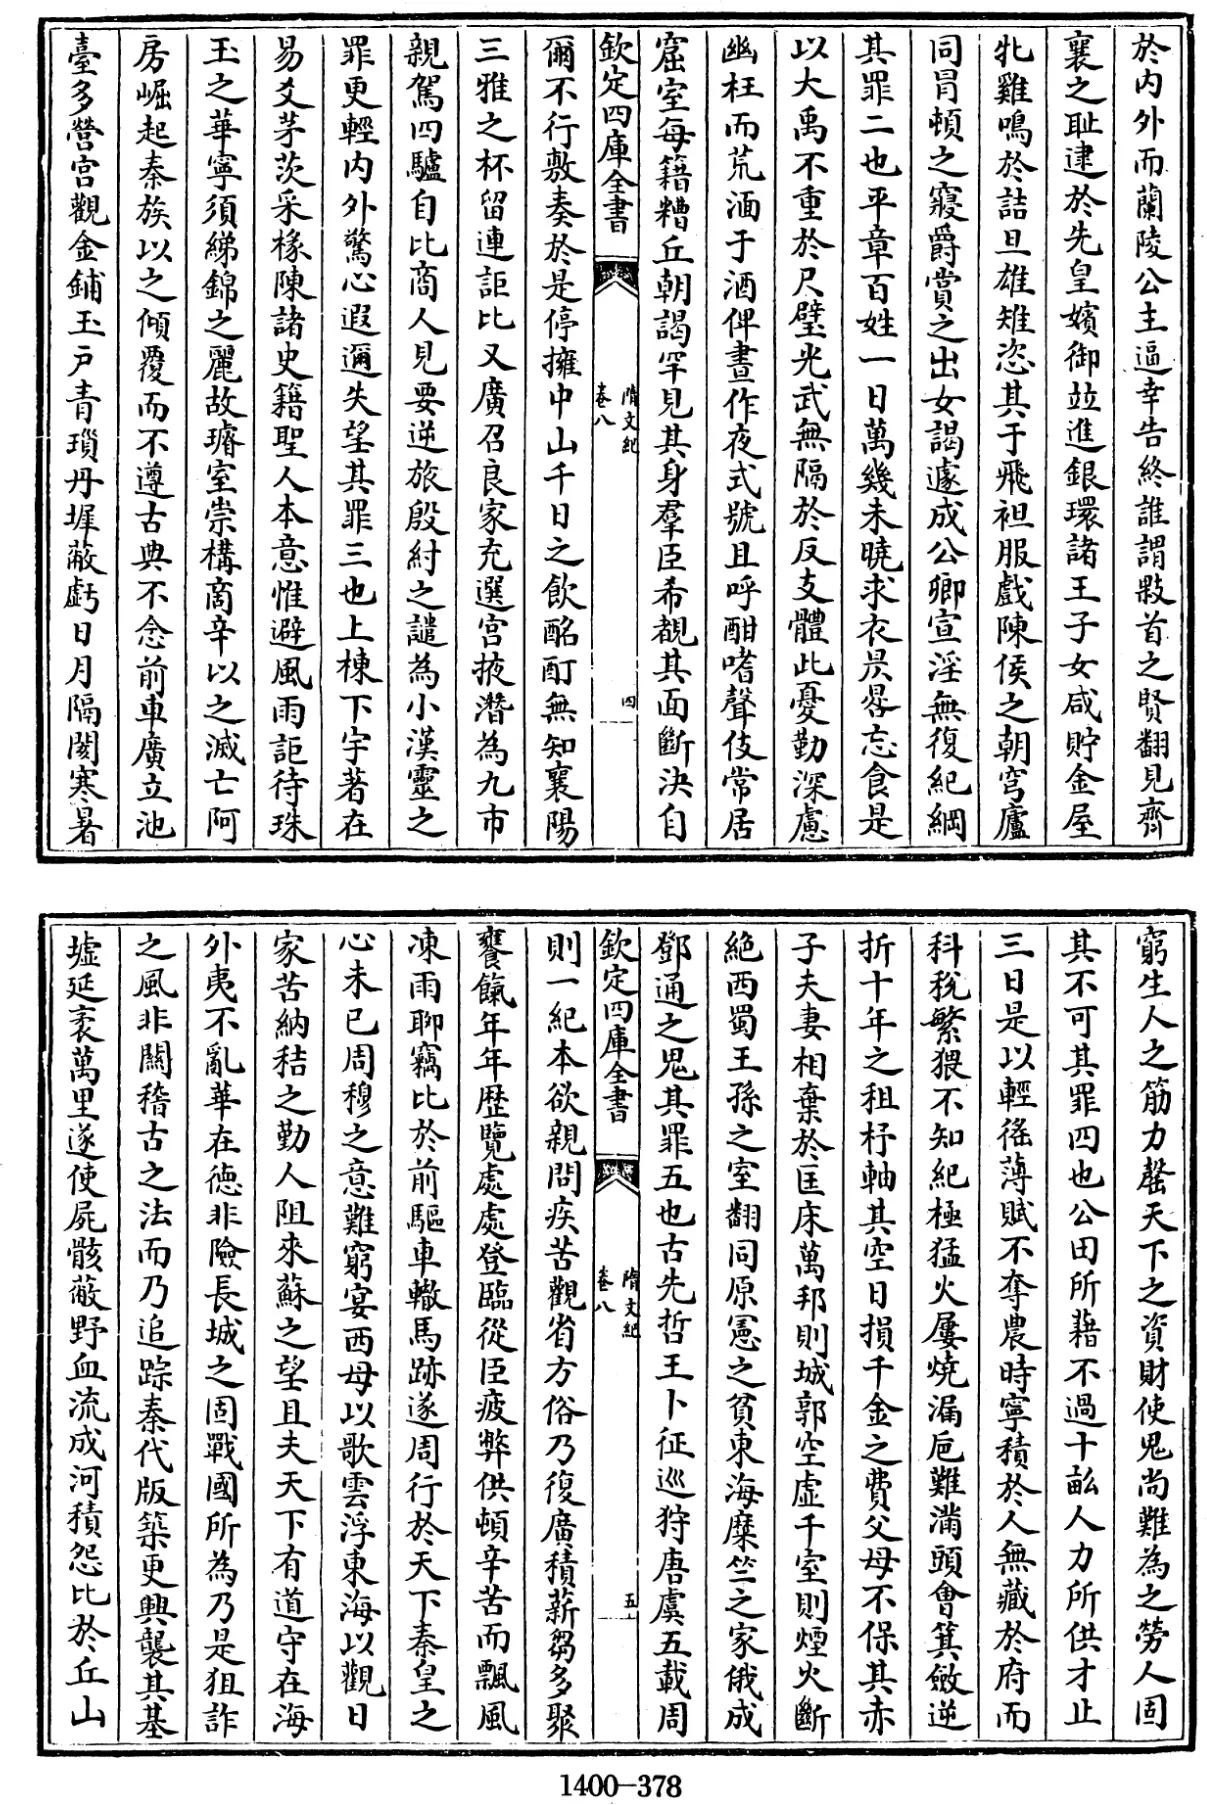 於内外而蘭陵公主逼幸告終誰謂敤首之賢翻見齊
襄之耻逮於先皇嬪御竝進銀環諸王子女咸貯金屋
牝雞鳴於詰旦雄雉恣其于飛袒服戲陳侯之朝穹廬
同冒頓之寢爵賞之出女謁遽成公卿宣淫無復紀綱
其罪二也平章百姓一日萬幾未曉求衣昃晷忘食是
以大禹不重於尺璧光武無隔於反支體此憂勤深慮
幽枉而荒湎于酒俾晝作夜式號且呼酣嗜聲伎常居
窟室每籍糟丘朝謁罕見其身羣臣希覩其面斷決自
欽定四庫全書
隋文紀
卷八
四
爾不行敷奏於是停擁中山千日之飲酩酊無知襄陽
三雅之杯留連詎比又廣召良家充選宮掖潛為九市
親駕四驢自比商人見要逆旅殷紂之譴為小漢靈之
罪更輕内外驚心遐邇失望其罪三也上棟下宇著在
易爻茅茨采椽陳諸史籍聖人本意惟避風雨詎待珠
玉之華寧須綈錦之麗故璿室崇構商辛以之滅亡阿
房崛起秦族以之傾覆而不遵古典不念前車廣立池
臺多營宮觀金鋪玉戶青瑣丹墀蔽虧日月隔閡寒暑
窮生人之筋力罄天下之資財使鬼尚難為之勞人固
其不可其罪四也公田所藉不過十畝人力所供才止
三日是以輕徭薄賦不奪農時寧積於人無藏於府而
科稅繁猥不知紀極猛火屢燒漏卮難滿頭會箕斂逆
折十年之租杼軸其空日損千金之費父母不保其赤
子夫妻相棄於匡床萬邦則城郭空虛千室則煙火斷
絶西蜀王孫之室翻同原憲之貧東海糜竺之家俄成
鄧通之鬼其罪五也古先哲王卜征巡狩唐虞五載周
欽定四庫全書
隋文紀
卷八
五
則一紀本欲親問疾苦觀省方俗乃復廣積薪芻多聚
饔餼年年歴覽處處登臨從臣疲弊供頓辛苦而飄風
凍雨聊竊比於前驅車轍馬跡遂周行於天下秦皇之
心未已周穆之意難窮宴西母以歌雲浮東海以觀日
家苦納秸之勤人阻來蘇之望且夫天下有道守在海
外夷不亂華在德非險長城之固戰國所為乃是狙詐
之風非關稽古之法而乃追踪秦代版築更興襲其基
墟延袤萬里遂使屍骸蔽野血流成河積怨比於丘山
1400-378